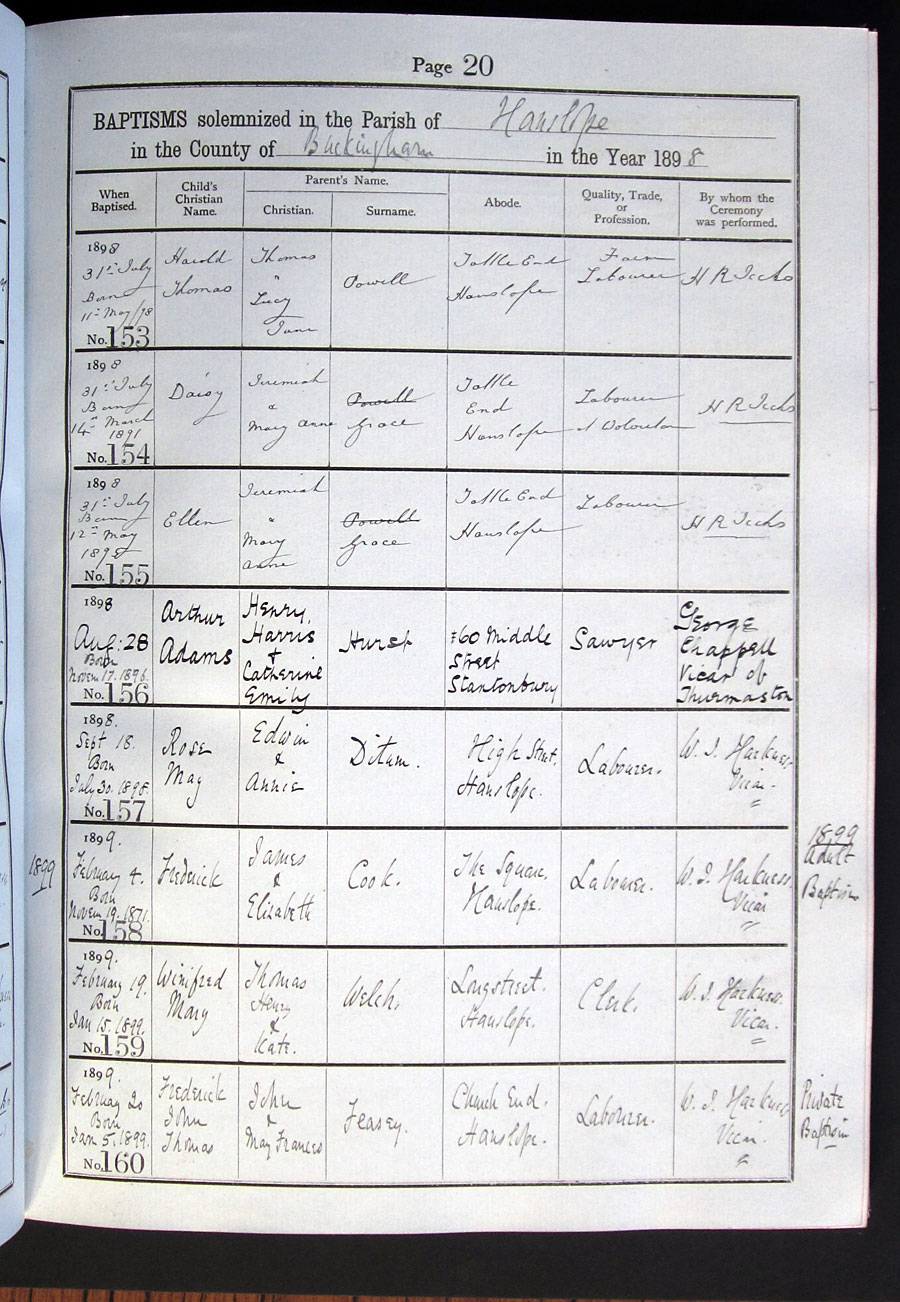 Page 20
BAPTISMS solemnized in the Parish of Hanslope
in the County of Buckingham in the Year 1898
When Baptised.
Child's Christian Name.
Parent's Name.
Christian.
Surname.
Abode.
Quality, Trade, or Profession.
By whom the Ceremony was performed.
1898
31st July
Born
11th May /98
No. 153
Harold
Thomas
Thomas
"
Lucy
Jane
Powell
Tattle End
Hanslope
Farm
Labourer
H R
1898
31st July
Born
14th March
1891
No. 154
Daisy
Jeremiah
&
Mary Anne
Powell
Grace
Tattle
End
Hanslope
Labourer
at Wolverton
H R
1898
31st July
Born
12th May
1898
No. 155
Ellen
Jeremiah
&
Mary
Anne
Powell
Grace
Tattle End
Hanslope
Labourer
H R
1898
Aug: 28
Born
Novem 17. 1896.
No. 156
Arthur
Adams
Henry,
Harris
+
Catherine
Emily
Hurst
60 Middle
Street
Stantonbury
Sawyer
George
Chappell
Vicar of
Thurmaston
1898.
Sept 18.
Born
July 30. 1898.
No. 157
Rose
May
Edwin
&
Annie
Ditum.
High Street.
Hanslope.
Labourer.
W. J. Harkness.
Vicar.
1899
1899.
February 4.
Born
Novem 19. 1871.
No. 158
Frederick
James
&
Elizabeth
Cook.
The Square.
Hanslope.
Labourer.
W. J. Harkness.
Vicar
1899
Adult
Baptism
1899.
February 19.
Born
Jan 15. 1899.
No. 159
Winifred
Mary
Thomas
Henry
&
Kate.
Welch.
Longstreet.
Hanslope.
Clerk.
W. J. Harkness.
Vicar.
1899.
February 20
Born
Jan 5. 1899.
No. 160
Frederick
John
Thomas
John
&
May Frances
Feasey.
Church End.
Hanslope.
Labourer.
W. J. Harkness
Vicar.
Private
Baptism